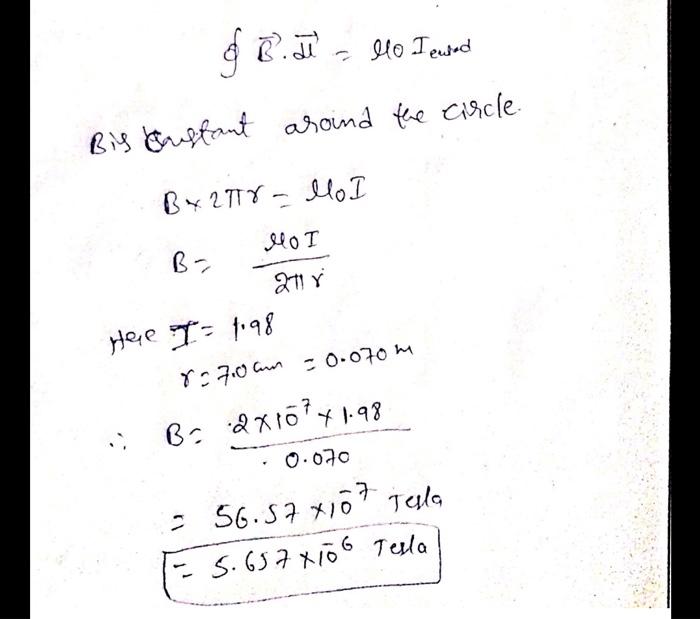 ∮ B⃗ . dl⃗ = μ0 I
B is Constant around the circle.
B × 2πr = μ0I
B = μ0I / 2πr
Here I = 1.98
r = 7.0 cm = 0.070 m
∴ B = 2×10⁻⁷ × 1.98 / 0.070
= 56.57 ×10⁻⁷ Tesla
= 5.657 ×10⁻⁶ Tesla